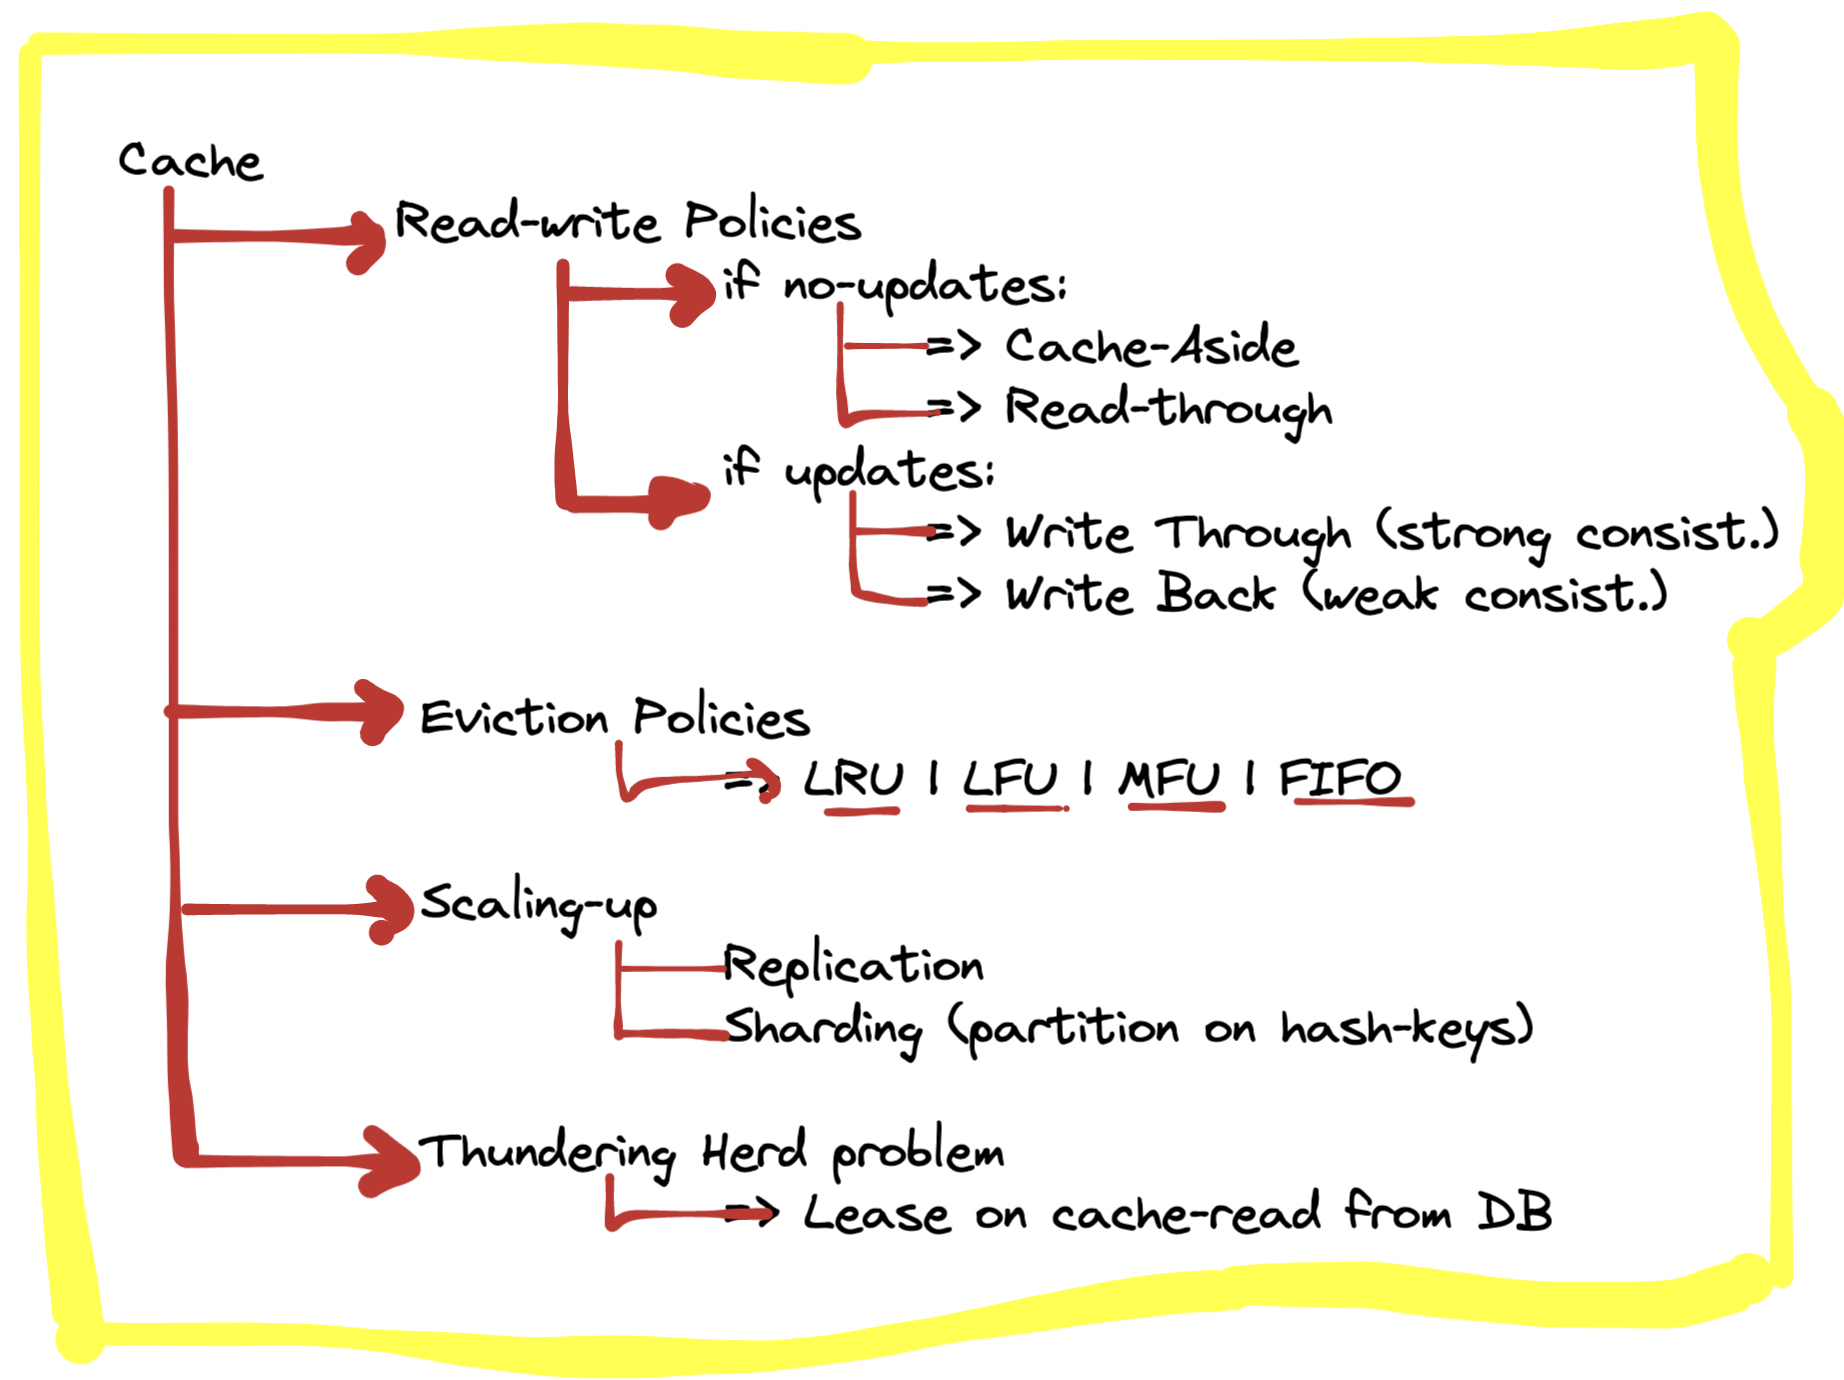 Cache
Read-write Policies
if no-updates:
=> Cache-Aside
=> Read-through
if updates:
=> Write Through (strong consist.)
=> Write Back (weak consist.)
Eviction Policies
=> LRU | LFU | MFU | FIFO
Scaling-up
Replication
Sharding (partition on hash-keys)
Thundering Herd problem
=> Lease on cache-read from DB